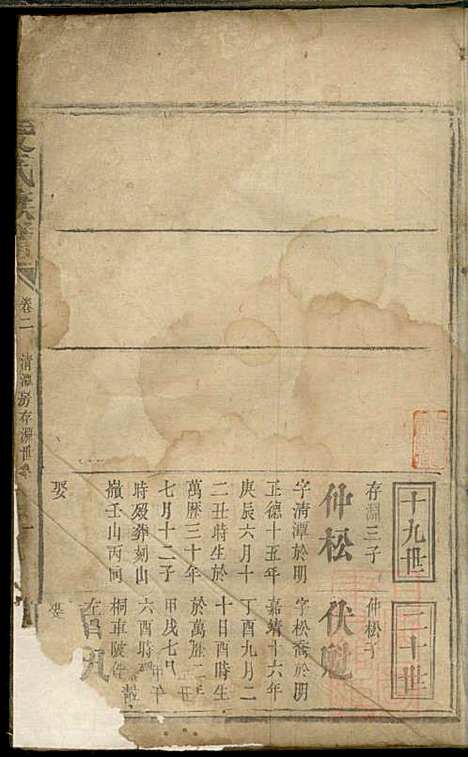 十九世
存淵三子
仲松
字清潭於明
正德十五年
庚辰六月十
二丑時生於
萬曆三十年
七月十二子
時歿葬刻山
嶺壬山丙向
娶
二十世
仲松子
伏魁
字松喬於明
嘉靖十六年
丁酉九月二
十日酉時生
於萬歷二年
甲戌七
六酉時
桐車陂
左
娶
氏族譜
卷二
清潭房存淵世系